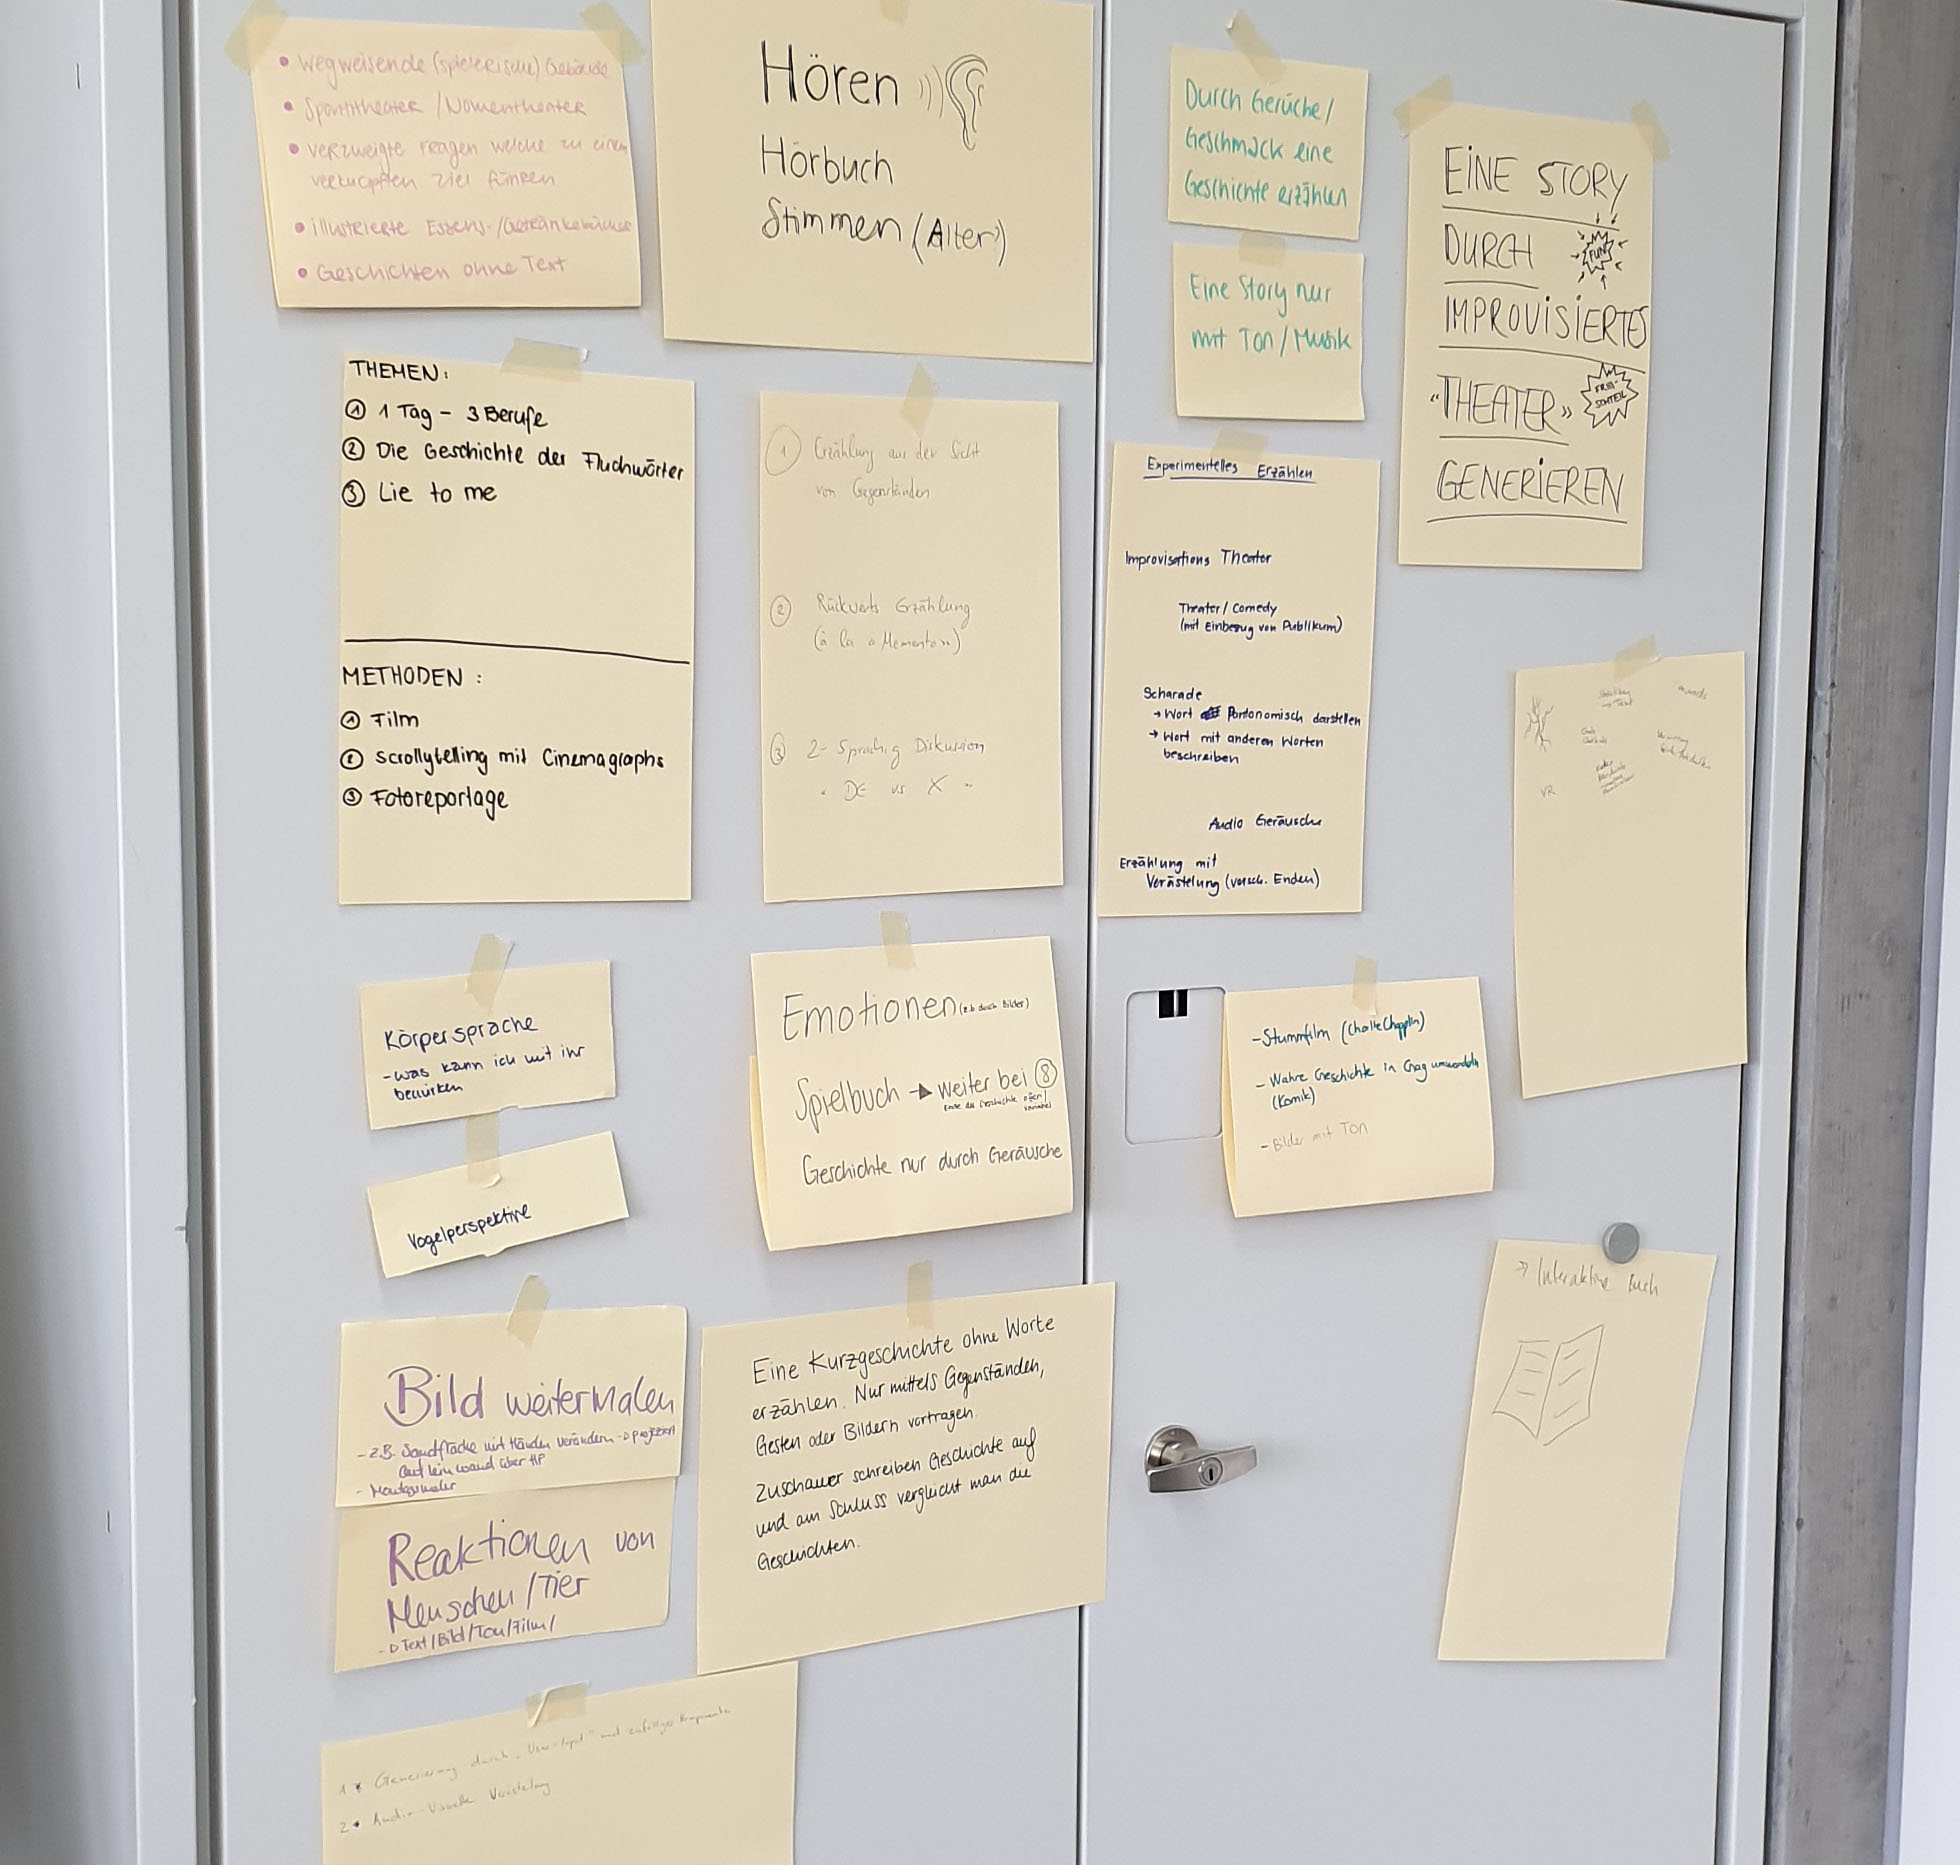 • wegweisende (spielerische) Gebäude
• Spontitheater / Nomentheater
• verzweigte Fragen welche zu einem
verknüpften Ziel führen
• illustrierte Essens-/Getränkebücher
• Geschichten ohne Text
Hören
Hörbuch
Stimmen (Alter)
Durch Gerüche/
Geschmack eine
Geschichte erzählen
Eine Story nur
mit Ton / Musik
EINE STORY
DURCH
FUN
IMPROVISIERTES
«THEATER»
GENERIEREN
THEMEN:
① 1 Tag - 3 Berufe
② Die Geschichte der Fluchwörter
③ Lie to me
METHODEN:
① Film
② Scrollytelling mit Cinemagraphs
③ Fotoreportage
① Erzählung aus der Sicht
von Gegenständen
② Rückverts Erzählung
(à la «Memento»)
③ 2-Sprachig Diskussion
" DE vs X "
Experimentelles Erzählen
Improvisations Theater
Theater / Comedy
(mit Einbezug von Publikum)
Scharade
→ Wort Pantonomisch darstellen
→ Wort mit anderen Worten
beschreiben
Audio Geräusche
Erzählung mit
Verästelung (versch. Enden)
VR
Körpersprache
- was kann ich mit ihr
bewirken
Vogelperspektive
Emotionen (z.b durch Bilder)
Spielbuch → weiter bei ⑧
Ende der Geschichte offen/
variabel
Geschichte nur durch Geräusche
- Stummfilm (Charlie Chapplin)
- Wahre Geschichte in Gag umwandeln
(Komik)
- Bilder mit Ton
Bild weitermalen
- z.B. Sandfläche mit Händen verändern → projiziert
auf Leinwand über HP
Reaktionen von
Menschen / Tier
→ Text / Bild / Ton / Film /
Eine Kurzgeschichte ohne Worte
erzählen. Nur mittels Gegenständen,
Gesten oder Bildern vortragen.
Zuschauer schreiben Geschichte auf
und am Schluss vergleicht man die
Geschichten.
→ Interaktive Buch
1 • Generierung durch „User-Input" und zufälliger
2 • Audio-Visuelle Verästelung